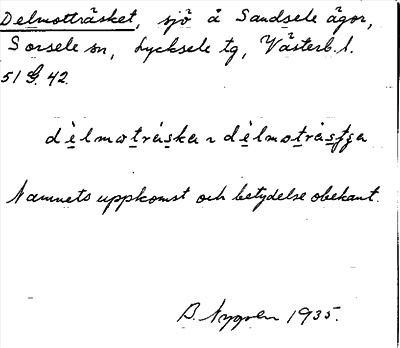 Delmotträsket, sjö å Sandsele ägor,
Sorsele sn, Lycksele tg, Västerb. l.
51 G. 42.
dèlmotráska ~ dèlmotrástja
Namnets uppkomst och betydelse obekant.
B. Nygren 1935.